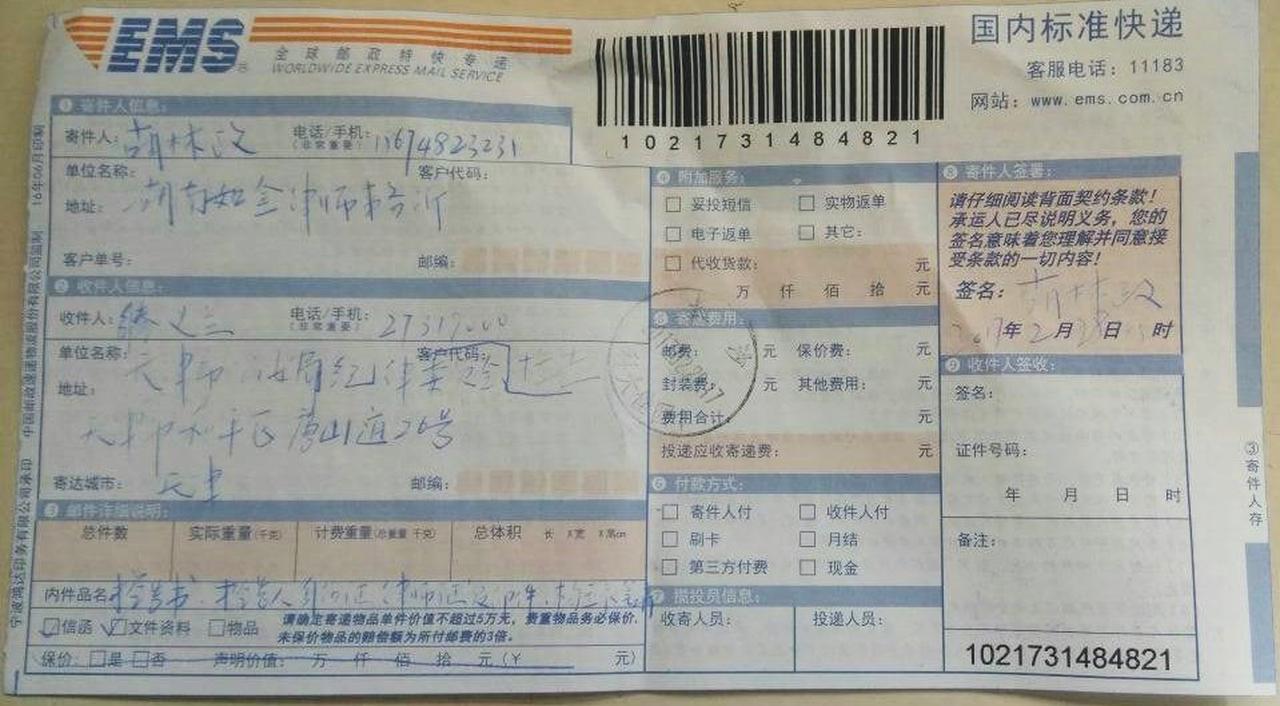 EMS
全球邮政特快专递
WORLDWIDE EXPRESS MAIL SERVICE
1021731484821
国内标准快递
客服电话：11183
网站：www.ems.com.cn
❶ 寄件人信息：
寄件人：胡林政 电话/手机：
（非常重要）
单位名称： 客户代码：
地址：
客户单号： 邮编：
❷ 收件人信息：
收件人： 电话/手机：
（非常重要）
单位名称： 客户代码：
天津市
地址：
天津市和平区唐山道26号
寄达城市：天津 邮编：
❸ 邮件详细说明：
总件数 实际重量（千克） 计费重量（总重量 千克） 总体积 长 X宽 X高cm
内件品名
信函 文件资料 物品
请确定寄递物品单件价值不超过5万元，贵重物品务必保价，
未保价物品的赔偿额为所付邮费的3倍。
保价：□是 □否 声明价值： 万 仟 佰 拾 元（¥ 元）
❹ 附加服务：
□ 妥投短信 □ 实物返单
□ 电子返单 □ 其它：
□ 代收货款： 元
万 仟 佰 拾 元
❺ 寄递费用：
邮费： 元 保价费： 元
封装费： 元 其他费用： 元
费用合计： 元
投递应收寄递费： 元
❻ 付款方式：
□ 寄件人付 □ 收件人付
□ 刷卡 □ 月结
□ 第三方付费 □ 现金
❼ 揽投员信息：
收寄人员： 投递人员：
❽ 寄件人签署：
请仔细阅读背面契约条款！
承运人已尽说明义务，您的
签名意味着您理解并同意接
受条款的一切内容！
签名：胡林政
年2月28日 时
❾ 收件人签收：
签名：
证件号码：
年 月 日 时
备注：
1021731484821
③寄件人存
宁波鸿达印务有限公司承印 中国邮政速递物流股份有限公司监制 16年06月印制